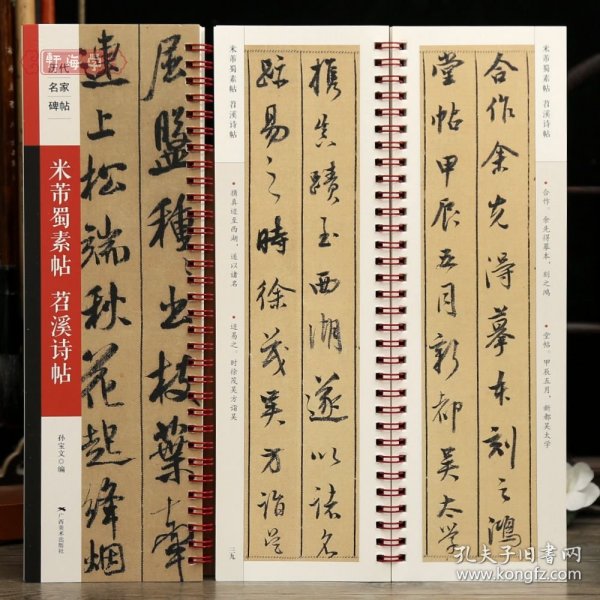 軒海學
历代
名家
碑帖
米芾蜀素帖 苕溪诗帖
孙宝文 编
广西美术出版社
屈盤種〻出枝葉牽
連上松端秋花起絳烟
米芾蜀素帖 苕溪诗帖
携真蹟至西湖遂以諸名
跡易之時徐茂吴方詣吴
•携真迹至西湖,遂以诸名
•迹易之。时徐茂吴方诣吴
三九
米芾蜀素帖 苕溪诗帖
合作余先得摹本刻之鴻
堂帖甲辰五月新都吴太學
•合作。余先得摹本,刻之鸿
•堂帖。甲辰五月,新都吴太学
孔夫子旧书网
www.kongfz.com